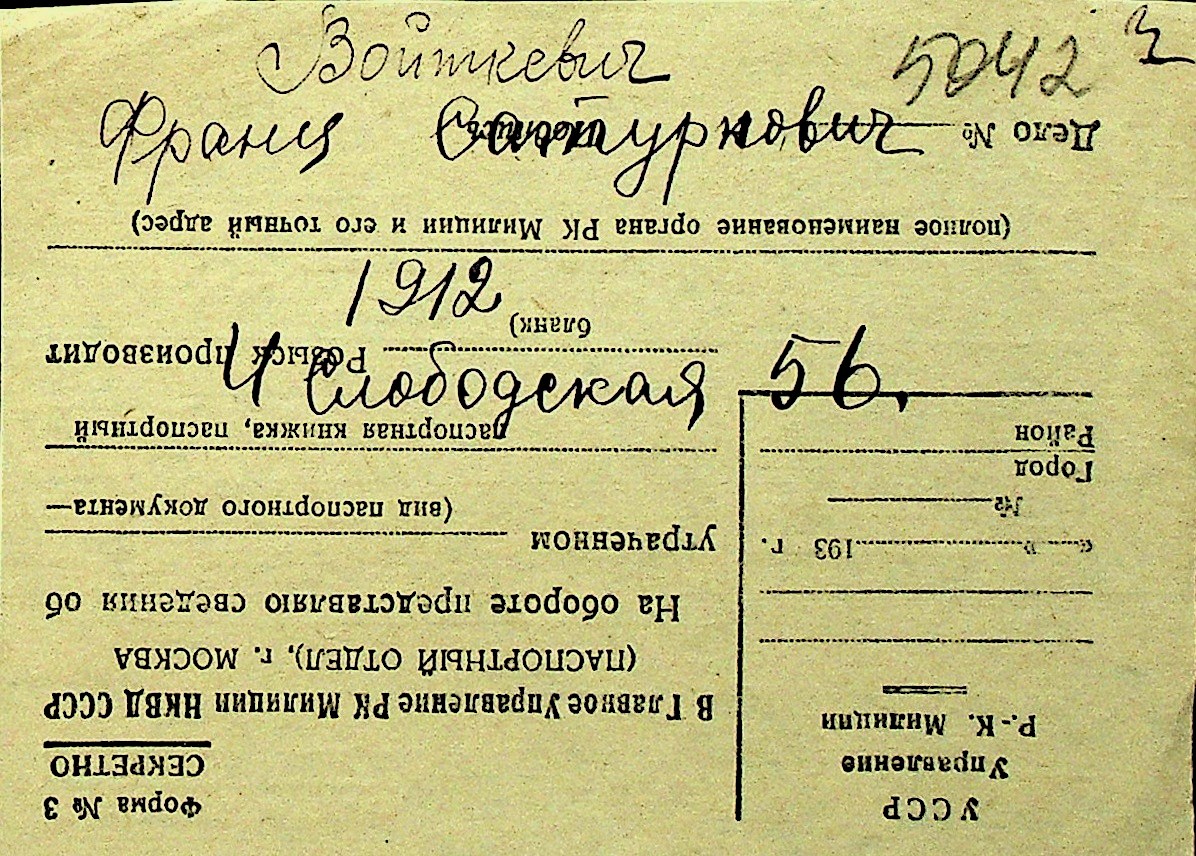 Войткевич
5042
Франц Сатурнович
1912
Слободская 56.
УССР
Управление
Р.-К. Милиции
« » 193 г.
№
Город
Район
Форма № 3
СЕКРЕТНО
В Главное Управление РК Милиции НКВД СССР
(ПАСПОРТНЫЙ ОТДЕЛ), г. МОСКВА
На обороте представляю сведения об
утраченном
(вид паспортного документа—
паспортная книжка, паспортный
бланк)
Розыск производит
(полное наименование органа РК Милиции и его точный адрес)
Дело №